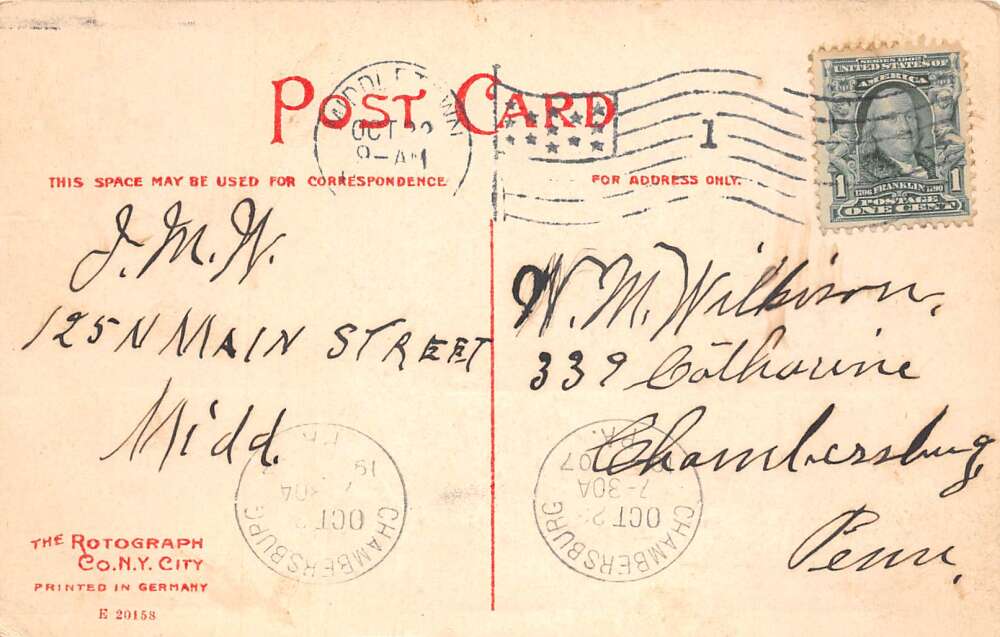 POST CARD
MIDDLETOWN
OCT 22
9-AM
1
SERIES 1902
UNITED STATES OF
AMERICA
1 1706 FRANKLIN 1790 1
POSTAGE
ONE CENT
THIS SPACE MAY BE USED FOR CORRESPONDENCE
FOR ADDRESS ONLY.
J. M. W.
125 N MAIN STREET
Midd.
W. M. Wilkison,
339 Catharine
Chambersburg,
Penn,
CHAMBERSBURG
OCT 2
PA.
19
CHAMBERSBURG
OCT 2
7-30A
07
PA.
THE ROTOGRAPH
CO. N.Y. CITY
PRINTED IN GERMANY
E 20158